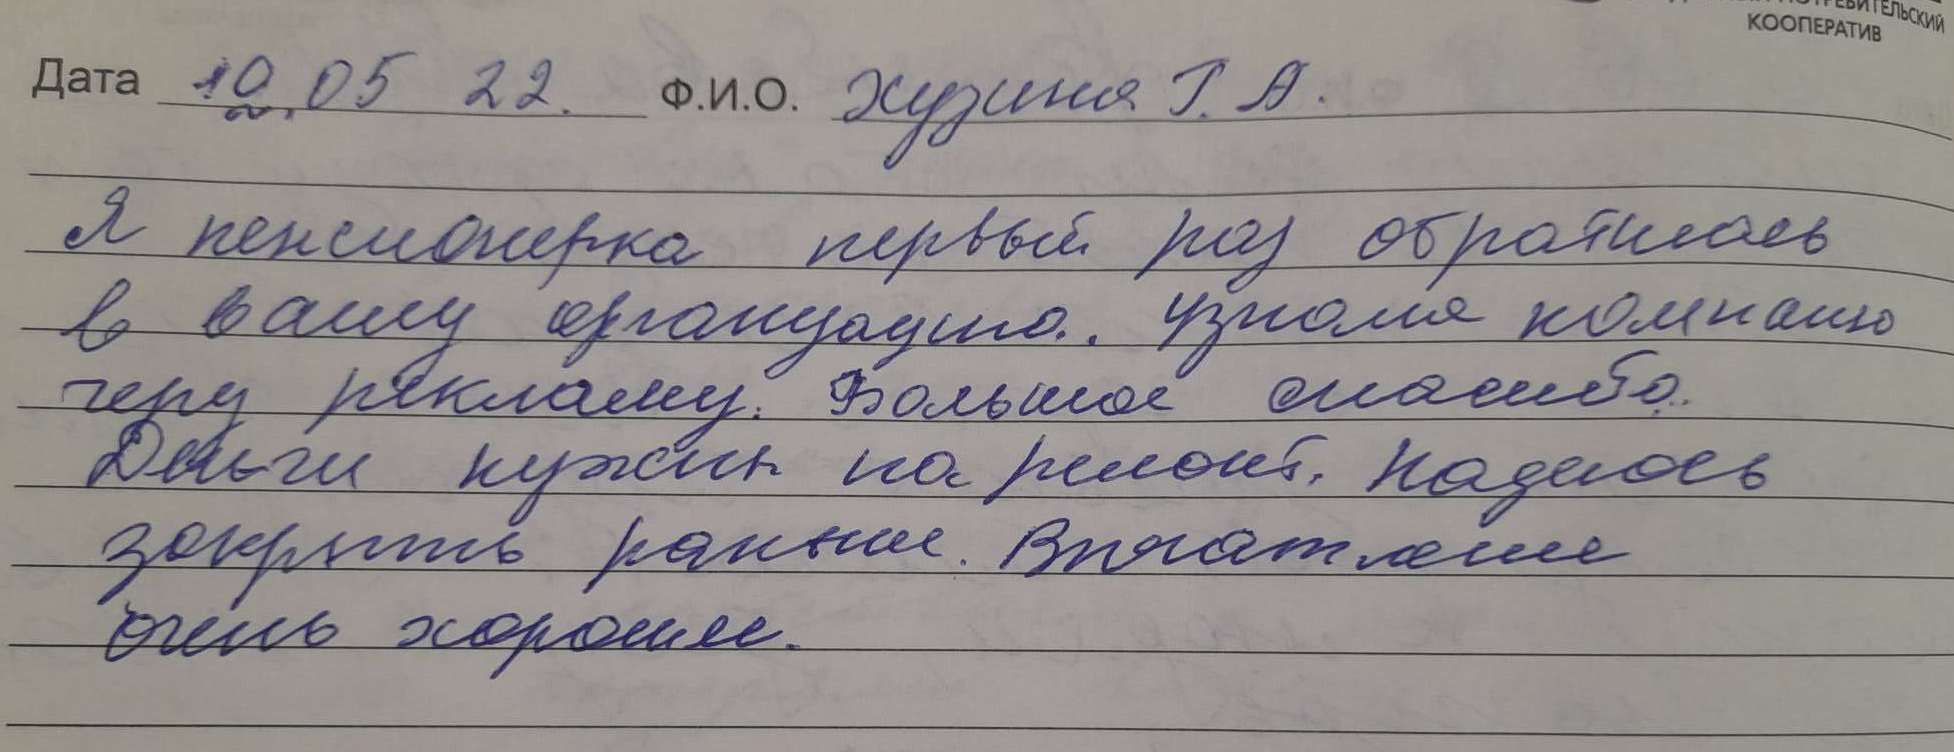 ПОТРЕБИТЕЛЬСКИЙ
КООПЕРАТИВ
Дата 10.05 22. Ф.И.О. Хузина Г. А.
Я пенсионерка первый раз обратилась
в вашу организацию. Узнала компанию
через рекламу. Большое спасибо.
Деньги нужны на ремонт. Надеюсь
закрыть раньше. Впечатление
очень хорошее.